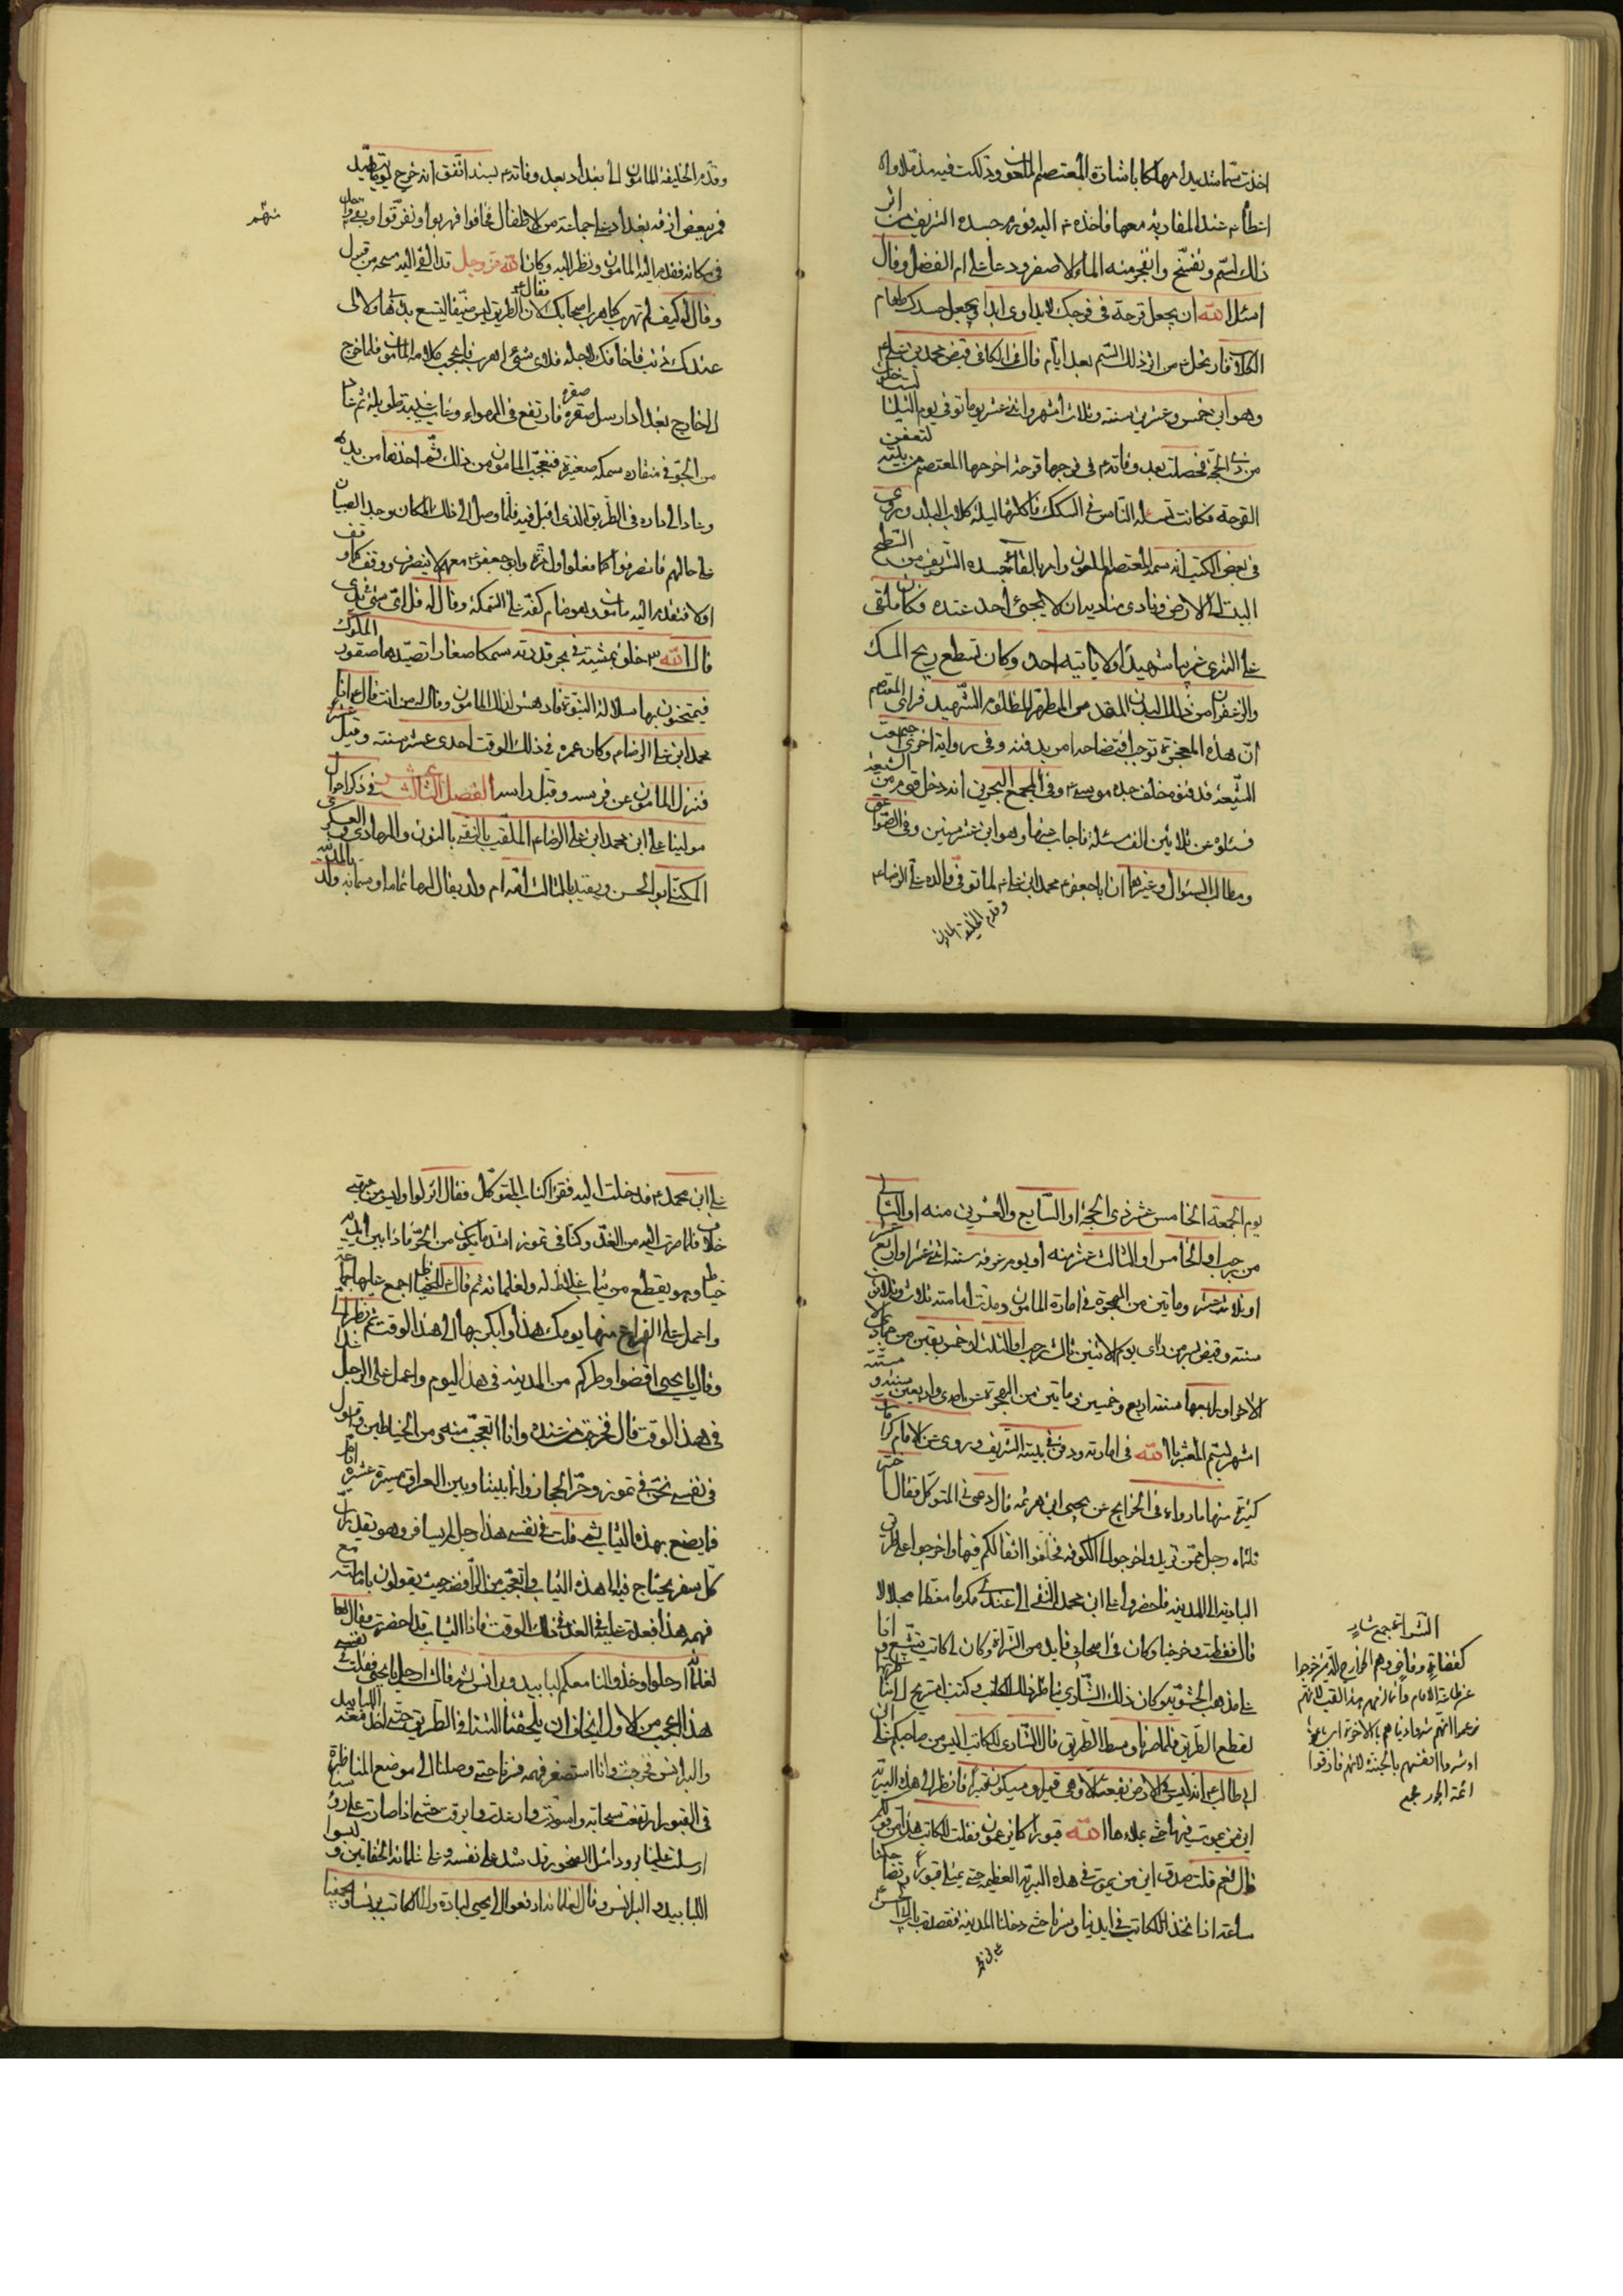 اخذت سمّا شديدا مهلكا باشارة المعتصم الملعون وذلكت فيه مذ ملاواه
عند المقاربة معها فاخذه م اليه فورم جسده الشريف من اثر
ذلك السّم وتفسّخ وانفجر منه الماء الاصفر ودعا على ام الفضل وقال
اسئل الله ان يجعل قرحة في فرجك لا يداوى ابدا ويجعل جسدك طعام
الكلاب فارتحل م من اثر ذلك السّم بعد ايام قال في الكافي قبض محمد بن علي م
وهو ابن خمس وعشرين سنة وثلاث اشهر واثنى عشر يوما توفي يوم الثلثا لست خلون
من ذي الحجّة فحصلت بعد وفاته م في فرجها قرحة اخرجها المعتصم من بيته لتعفن
القرحة فكانت تسئل النّاس في السكك فاكلتها ليلة كلاب البلد وروى
في بعض الكتب انه سمه المعتصم الملعون وامر بالقاء جسده الشريف من السّطح
البيت الى الارض ونادى مناديه ان لا يجيئ احد عنده فكان ملقى
على الثرى غريبا شهيدا ولا ياتيه احد وكان تسطع ريح المسك
والزعفران من ذلك البدن المقدس المطهر المظلوم الشّهيد فراى المعتصم
انّ هذه المعجزة توجب افتضاحه امر بدفنه وفي رواية اخرى جمعت
الشّيعة فدفنوه خلف جده موسى م وفي المجمع البحرين انه دخل قوم من الشيعة
فسئلوه عن ثلاثين الف مسئلة فاجاب عنها وهو ابن عشر سنين وفي الصّواعق
ومطالب السئول وغيرها ان ابا جعفر م محمد ابن علي م لما توفي والده علي الرضا م
وقدم الخليفة المامون
وقدم الخليفة المامون الى بغداد بعد وفاته م بسنة اتّفق انه خرج يوما يتصيّد
فمرّ ببعض ازقه بغداد على جماعة من الاطفال فخافوا فهربوا وتفرّقوا وبقي واحد
منهم
في مكانه فتقدم اليه المامون ونظر اليه وكان الله عز وجل قد القى اليه مسحة من قبول
وقال له كيف لم تهرب كما هرب اصحابك فقال م لان الطريق ليس ضيّقا ليتسع بذهابي ولا لى
عندك ذنب فاخافك لاجله فلاي شيئ اهرب فاعجب كلامه المامون فلما خرج
الى خارج بغداد ارسل صقره فارتفع في الهواء وغاب عن يده طويلة ثم عاد
من الجوّ في منقاره سمكة صغيرة فتعجّب المامون من ذلك ثمّ اخذها من يده
وعاد الى داره في الطريق الذي اقبل فيه فلمّا وصل الى ذلك المكان وجد الصبيان
على حالهم فانصرفوا كما فعلوا اول مرّة وابو جعفر م معهم لا ينصرف ووقف كما وقف
اولا فتقدم اليه مامون وهو ضام كفّه على السّمكة وقال له قل اىّ شئ في يدى
قال الله خلق بمشيته في بحر قدرته سمكا صغارا تصيّدها صقور الملوك
فيمتحنون بها سلالة النبوّة فادهش لذلك المامون وقال له من انت قال م انا
محمد ابن علي الرضا م وكان عمره في ذلك الوقت احدى عشر سنة وقيل عشر
فنزل المامون عن فرسه وقبل راسه الفصل الثالث عشر في ذكر احوال
مولينا علي ابن محمد ابن علي الرضا م الملقّب بالنقي بالنون والهادي والعسكري
المكنّى ابو الحسن ويقيد بالثالث امه ام ولد يقال لها سمانة ولد بالمدينة
يوم الجمعة الخامس عشر ذي الحجّة او السّابع والعشرين منه او الثّاني
من رجب او الخامس او الثالث عشر منه او يوم عرفه سنة اثنى عشر او اربع عشر
او ثلاث عشر وماتين من الهجرة في امارة المامون ومدت امامته ثلاث وثلاثون
سنة وقبض بسر من راى يوم الاثنين ثالث رجب او الثلث او خمس بقين من جمادى
الاخر او رابعها سنة اربع وخمسين وماتين من الهجرة باحدى واربعين سنة و
اشهر بسم المعتز بالله في امارته ودفن في بيته الشريف وروى عن الامام كرامات
كثيرة منها ما رواه في الخرايج عن يحيى ابن هرثمه قال دعى في المتوكّل فقال اختر
ثلثاه رجل ممّن تريد واخرجوا الى الكوفة فخلّفوا اثقالكم فيها واخرجوا على طريق
البادية الى المدينة فاحضروا علي ابن محمد النّقي الى عندي مكرما معظما مبجلا
قال ففعلت وخرجنا وكان في اصحابي قايد من الشّراة وكان لى كاتب يتشيّع وانا
الشراة جمع شار
كقضاة وقاض وهم الخوارج الذين خرجوا
عن طاعة الامام وانما لزمهم هذا اللقب لانهم
زعموا انهم شروا دنياهم بالاخرة اى باعوا
او شروا انفسهم بالجنة لانهم فارقوا
ائمة الجور مجمع
على مذهب الحشويّه وكان ذلك الشّاري يناظر ذلك الكاتب وكنت استريح الى مناظرتهما
لقطع الطّريق فلما صرنا وسط الطّريق قال الشّارى للكاتب اليس من صاحبكم علي
ابي طالب م انه ليس في الارض بقعة الا وهي قبر او سيكون قبرا فانظر الى هذه البريّة
اين من يموت فيها حتّى يملاءها الله قبورا كما يزعمون فقلت للكاتب هذا من قولكم
قال نعم قلت صدق اين من يموت في هذه البريّة العظيمة حتى يمتلى قبورا وتضاحكنا
ساعة اذا نخذل الكاتب في ايدينا وسرنا حتّى دخلنا المدينة فقصدت باب ابي الحسن
علي ابن محمد م فدخلت اليه فقرا كتاب المتوكّل فقال انزلوا وليس من جهتي
خلاف فلما صرت اليه من الغد وكنّا في تموز اشد ما يكون من الحرّ فاذا بين يديه
خياط وهو يقطع من ثياب غلاظ له ولغلمانه ثم قال للخيّاط اجمع عليها جماعة
واعمل على الفراغ منها يومك هذا وابكر بها الى هذا الوقت ثم نظر الىّ
وقال يا يحيى اقضوا وطركم من المدينة في هذا اليوم واعمل على الرحيل غدا
في هذ الوقت قال فخرجت من عنده وانا اتعجّب منه ومن الخياطين و اقول
في نفسى نحن في تموز وحرّ الحجاز وانّما بيننا وبين العراق مسيرة عشرة ايّام
فما يصنع بهذه الثياب ثم قلت في نفسى هذا رجل لم يسافر وهو يقدّر انّ
كلّ سفر يحتاج فيه الى هذه الثياب واتعجّب من الرّافضة حيث يقولون بامامته مع
فهمه هذا فعدت عليه في الغد في ذلك الوقت فاذا الثياب قد احضرت فقال
لغلمانه ارحلوا وخذوا لنا معكم لبابيد وبرانس ثم قال ارحل يا يحيى فقلت في نفسى
هذا اعجب من الاول ايخاف ان يلحقنا الشتاء في الطّريق حتّى اخذ معه اللبابيد
والبرانس فخرجت وانا استصغر فهمه فسرنا حتى وصلنا الى موضع المناظرة
في القبور ارتفعت سحابة واسودّت وارعدت وابرقت حتّى اذا صارت على رؤسنا
ارسلت علينا بردا مثل الصخور وقد شد على نفسه وعلى غلمانه الخفاتين ولبسوا
اللبابيد والبرانس وقال لغلمانه ادفعوا الى يحيى لبادة والى الكاتب برنسا وتجمعنا